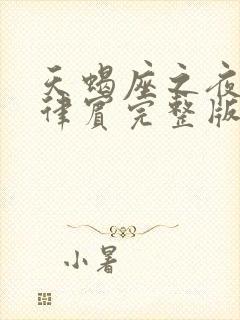 天蝎座之夜
律宾完整版
小暑